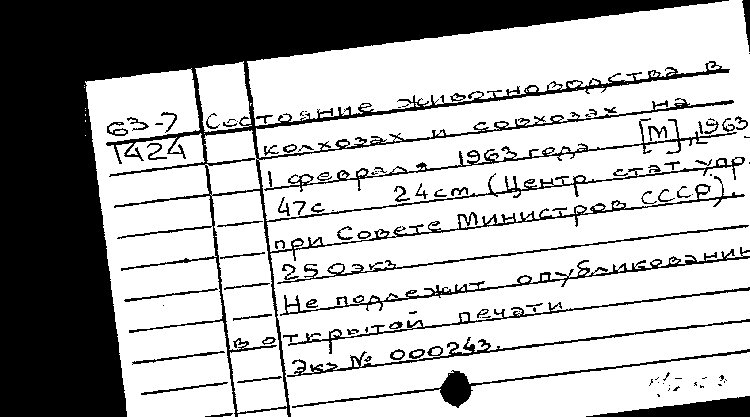 63-7 Состояние животноводства в
1424 колхозах и совхозах на
1 февраля 1963 года. [М], 1963
47с. 24см. (Центр. стат. упр.
при Совете Министров СССР).
250экз
Не подлежит опубликованию
в открытой печати
Экз № 000243.